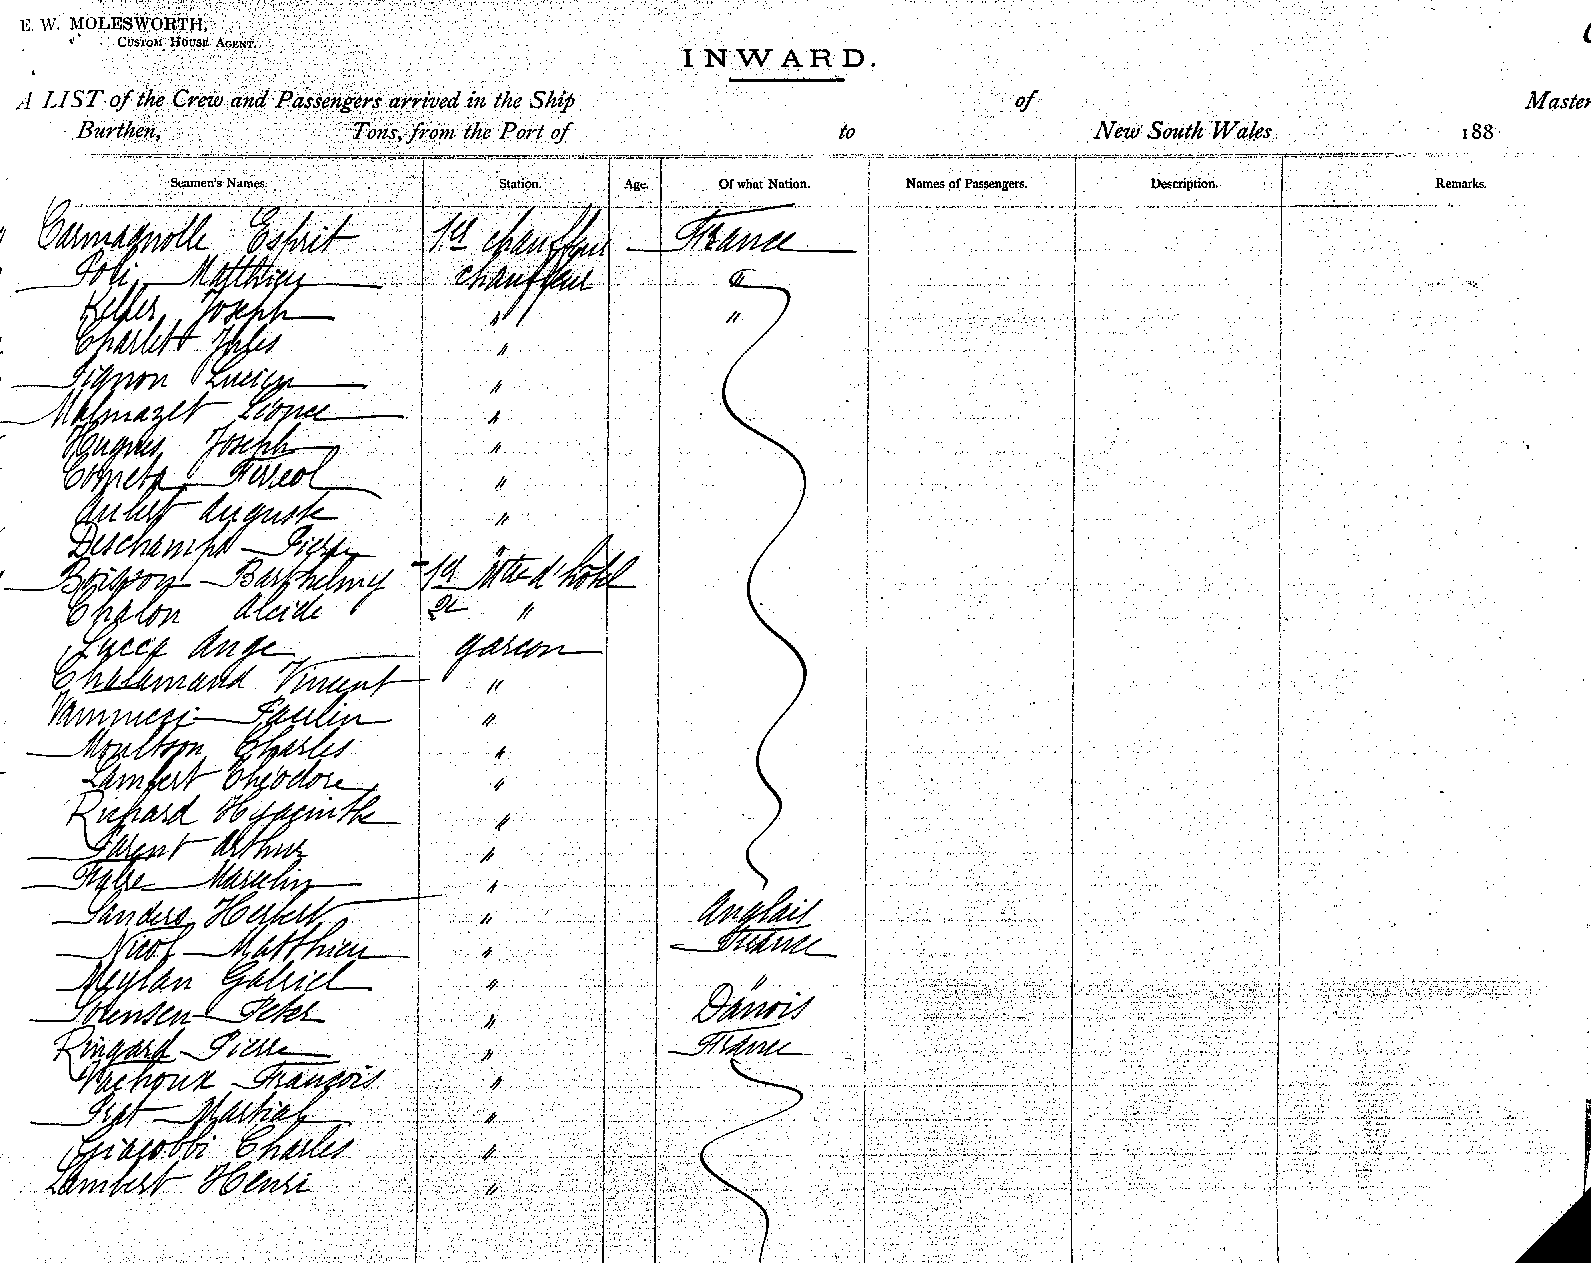 E. W. MOLESWORTH,
CUSTOM HOUSE AGENT.
INWARD.
A LIST of the Crew and Passengers arrived in the Ship of Master
Burthen, Tons, from the Port of to New South Wales 188
Seamen's Names. Station. Age. Of what Nation. Names of Passengers. Description. Remarks.
Carmagnolle Esprit 1er chauffeur France
Poli Matthieu chauffeur "
Keller Joseph " "
Charlett Jules "
Pignon Lucien "
Malmazet Léonce "
Hugues Joseph "
Ferreol "
Aubert Auguste "
Deschamps Pierre "
Boisson Barthelmy 1er Mtre d'hôtel
Chalon Alcide 2e "
Lucca Ange garcon
Chalamand Vincent "
Vannucci Paulin "
Charles "
Lambert Théodore "
Richard Hyacinthe "
Parent Arthur "
Fabre Marcelin "
Sanders Herbert " Anglais
Nicol Matthieu " France
Meylan Gabriel " "
Sorensen Peter " Danois
Ringard Pierre " France
Vachoux François "
Prat Martial "
Giacobbi Charles "
Lambert Henri "